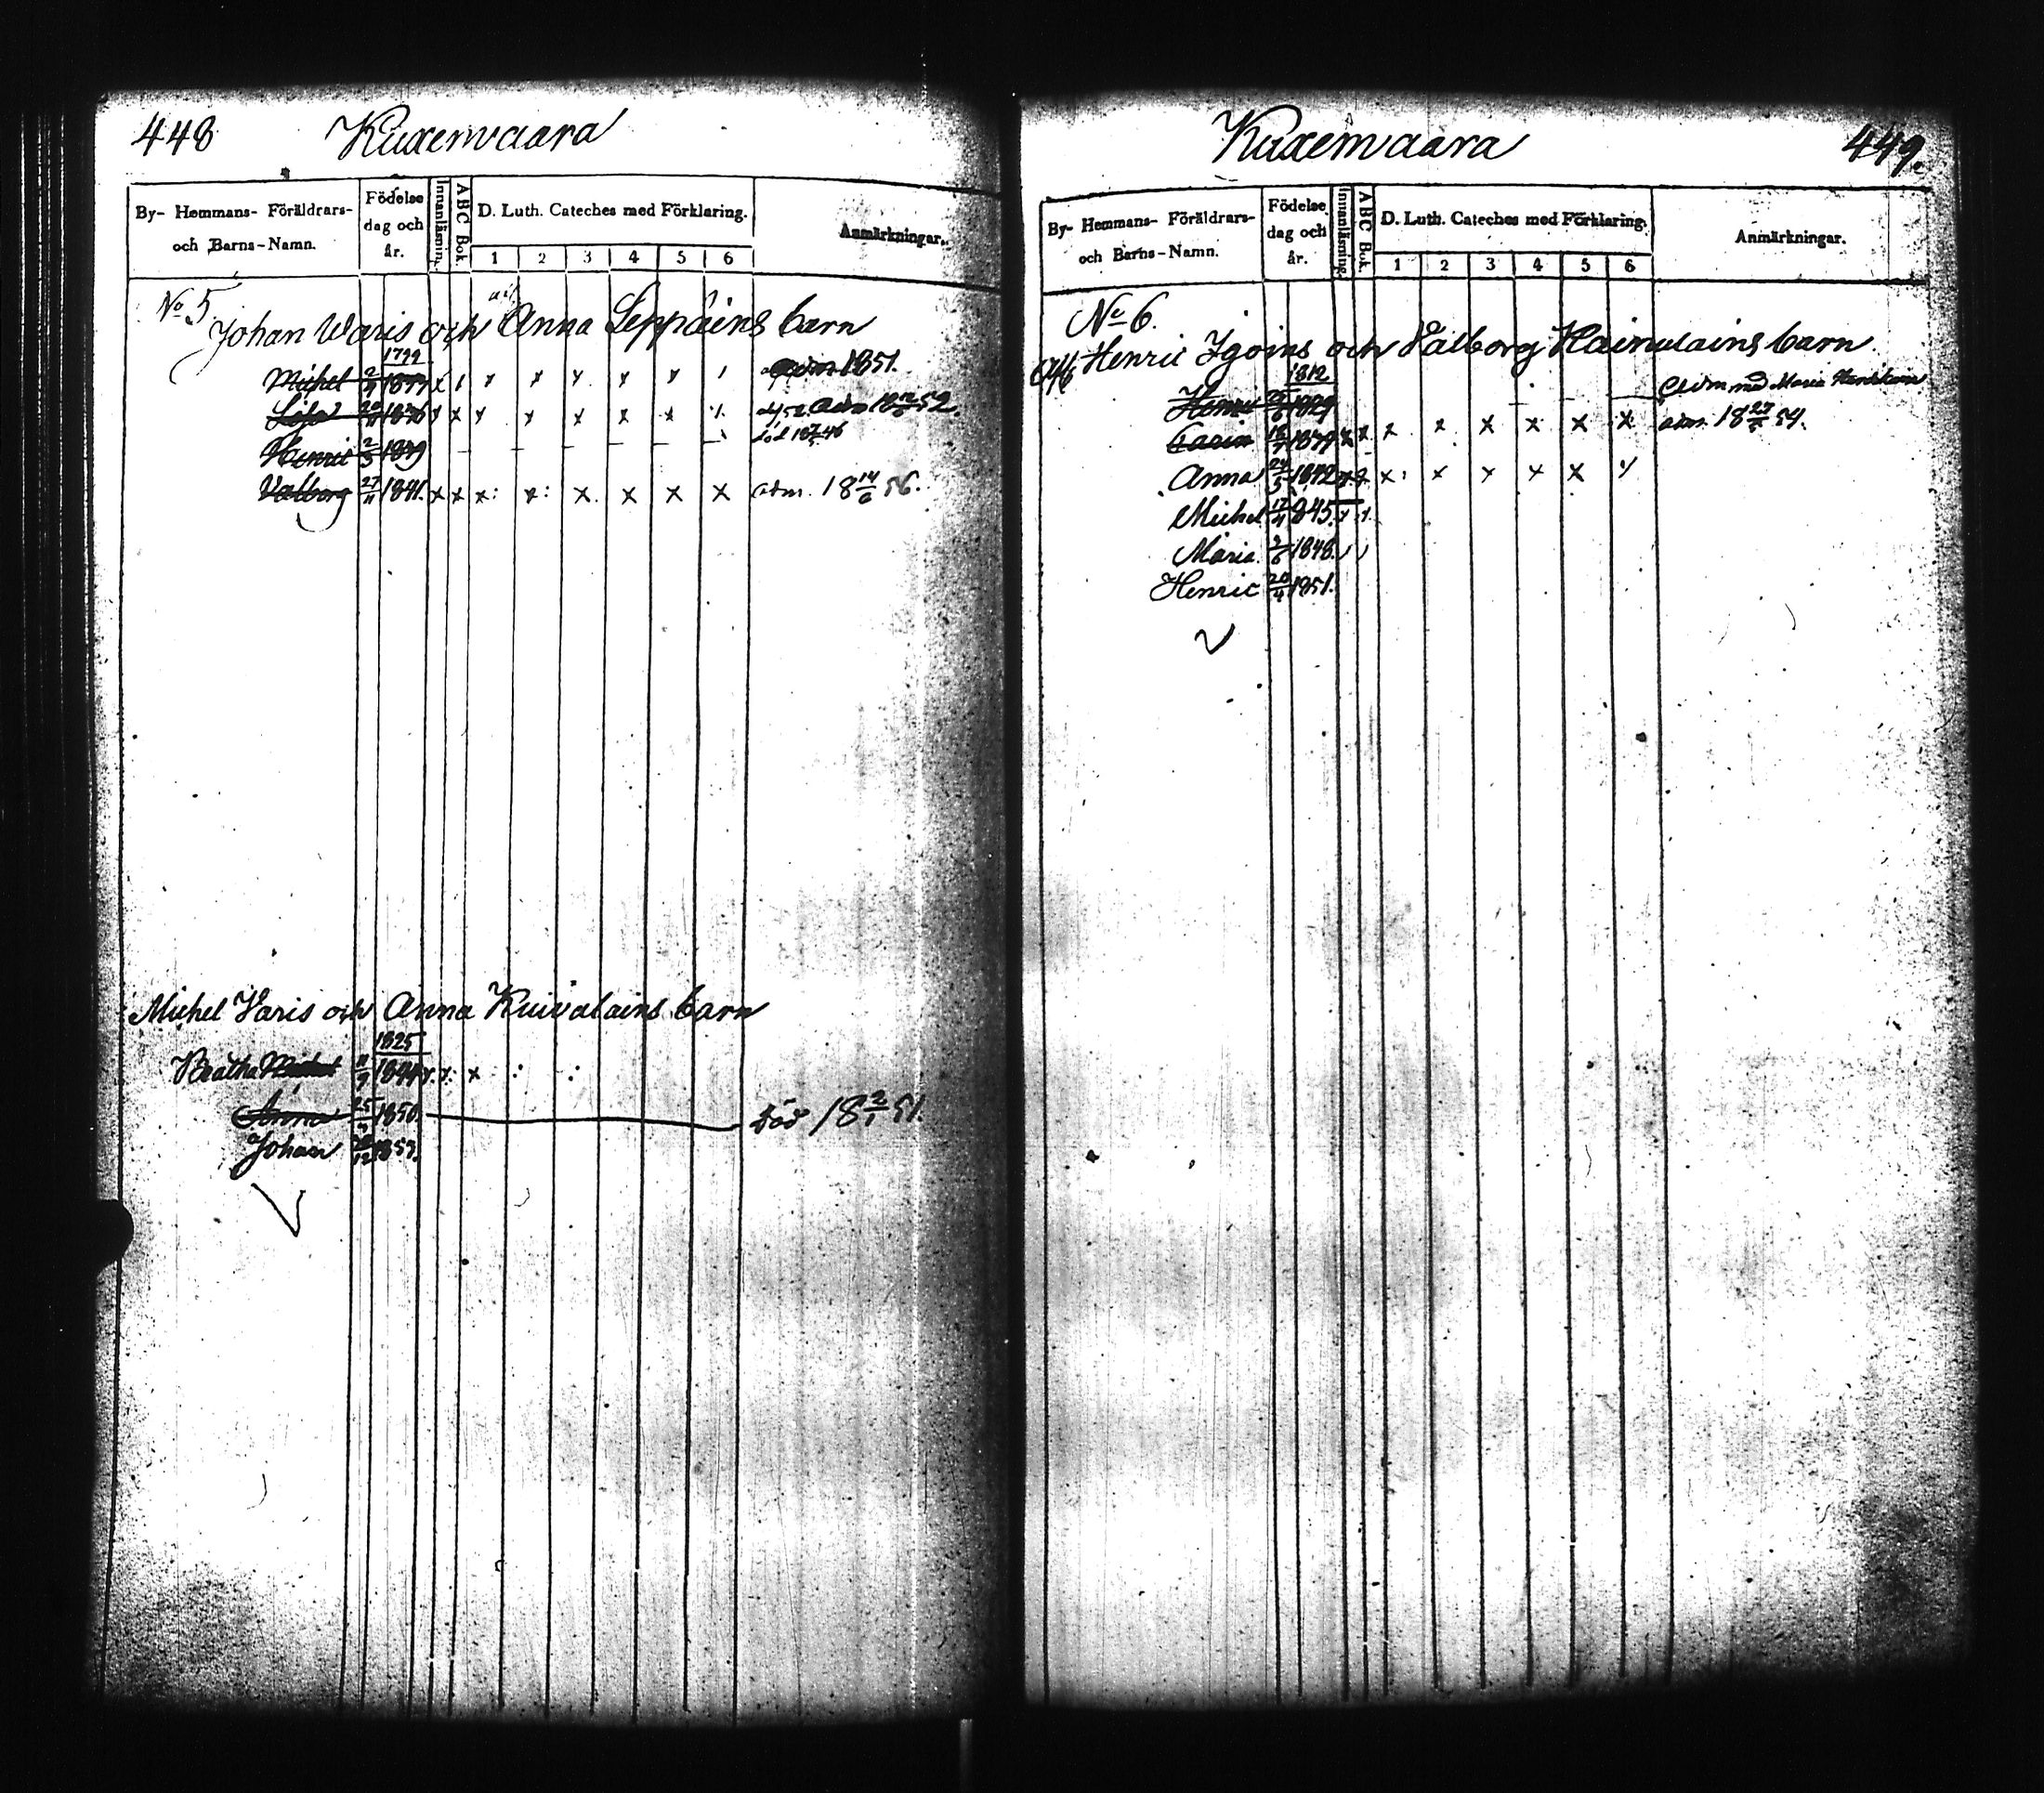 448 Kuxenvaara
By- Hemmans- Föräldrars- och Barns-Namn. Födelse dag och år. Innanläsning. ABC Bok. D. Luth. Cateches med Förklaring. Anmärkningar.
1 2 3 4 5 6
No 5.
Johan Waris och Anna Leppäins barn
1799
Michel 2/9 x 1 x x x x x 1851.
20/11 1836 x x x x x x x adm 18 52.
Henric 2/3 1839 död 46
Valborg 27/11 1841. x x x: x: x. x x x adm. 18 14/6 56.
Michel Varis och Anna Kuivalains barn
1825
Beatha 11/9 184 x. x. x : :
Anna 25/9 1850. död 18 2/1 51.
Johan 12 1853.
V
Kuxenvaara 449.
By- Hemmans- Föräldrars- och Barns-Namn. Födelse dag och år. Innanläsning. ABC Bok. D. Luth. Cateches med Förklaring. Anmärkningar.
1 2 3 4 5 6
No 6.
Henric Igoins och Valborg Hainulains barn
1812
Henric 1829 med Maria
Carin 18/7 x x x. x x x x x adm. 18 54.
Anna 24/5 1842 x x x: x x x x
Michel 17/11 1845. x x.
Maria. 2/6 1848.
Henric 20/4 1851.
V